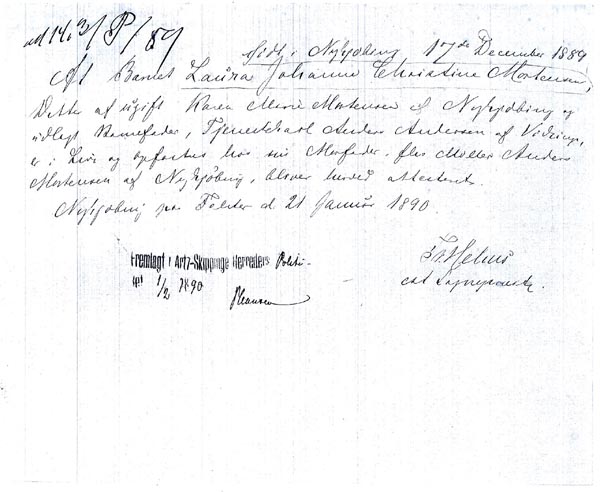 ad 14, 3/P/89
Født i Nykjøbing 17de December 1889
At Barnet Laura Johanne Christine Mortensen,
Datter af ugift Karen Marie Mortensen af Nykjøbing og
udlagt Barnefader, Tjenestekarl Anders Andersen af
er i Live og opfostres hos sin Morfader, Anders
Mortensen af Nykjøbing, bliver herved attesteret.
Nykjøbing paa Falster d 21 Januar 1890.
Fremlagt i Arts-Skippinge Herreders Politi-
ret 1/2 1890
cst Sognepræst.